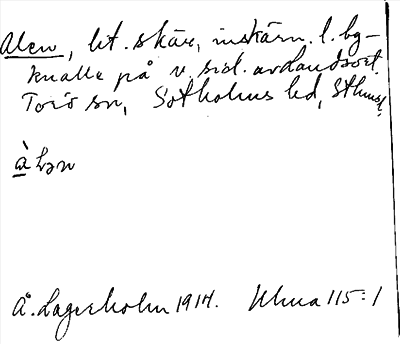 Alen, lit. skär, inskärn. l. byg-
knalle på v. sid. av Landsort.
Torö sn, Sotholms hd, Sthmsl.
à lən
Å. Lagerholm 1914. Uhna 115:1